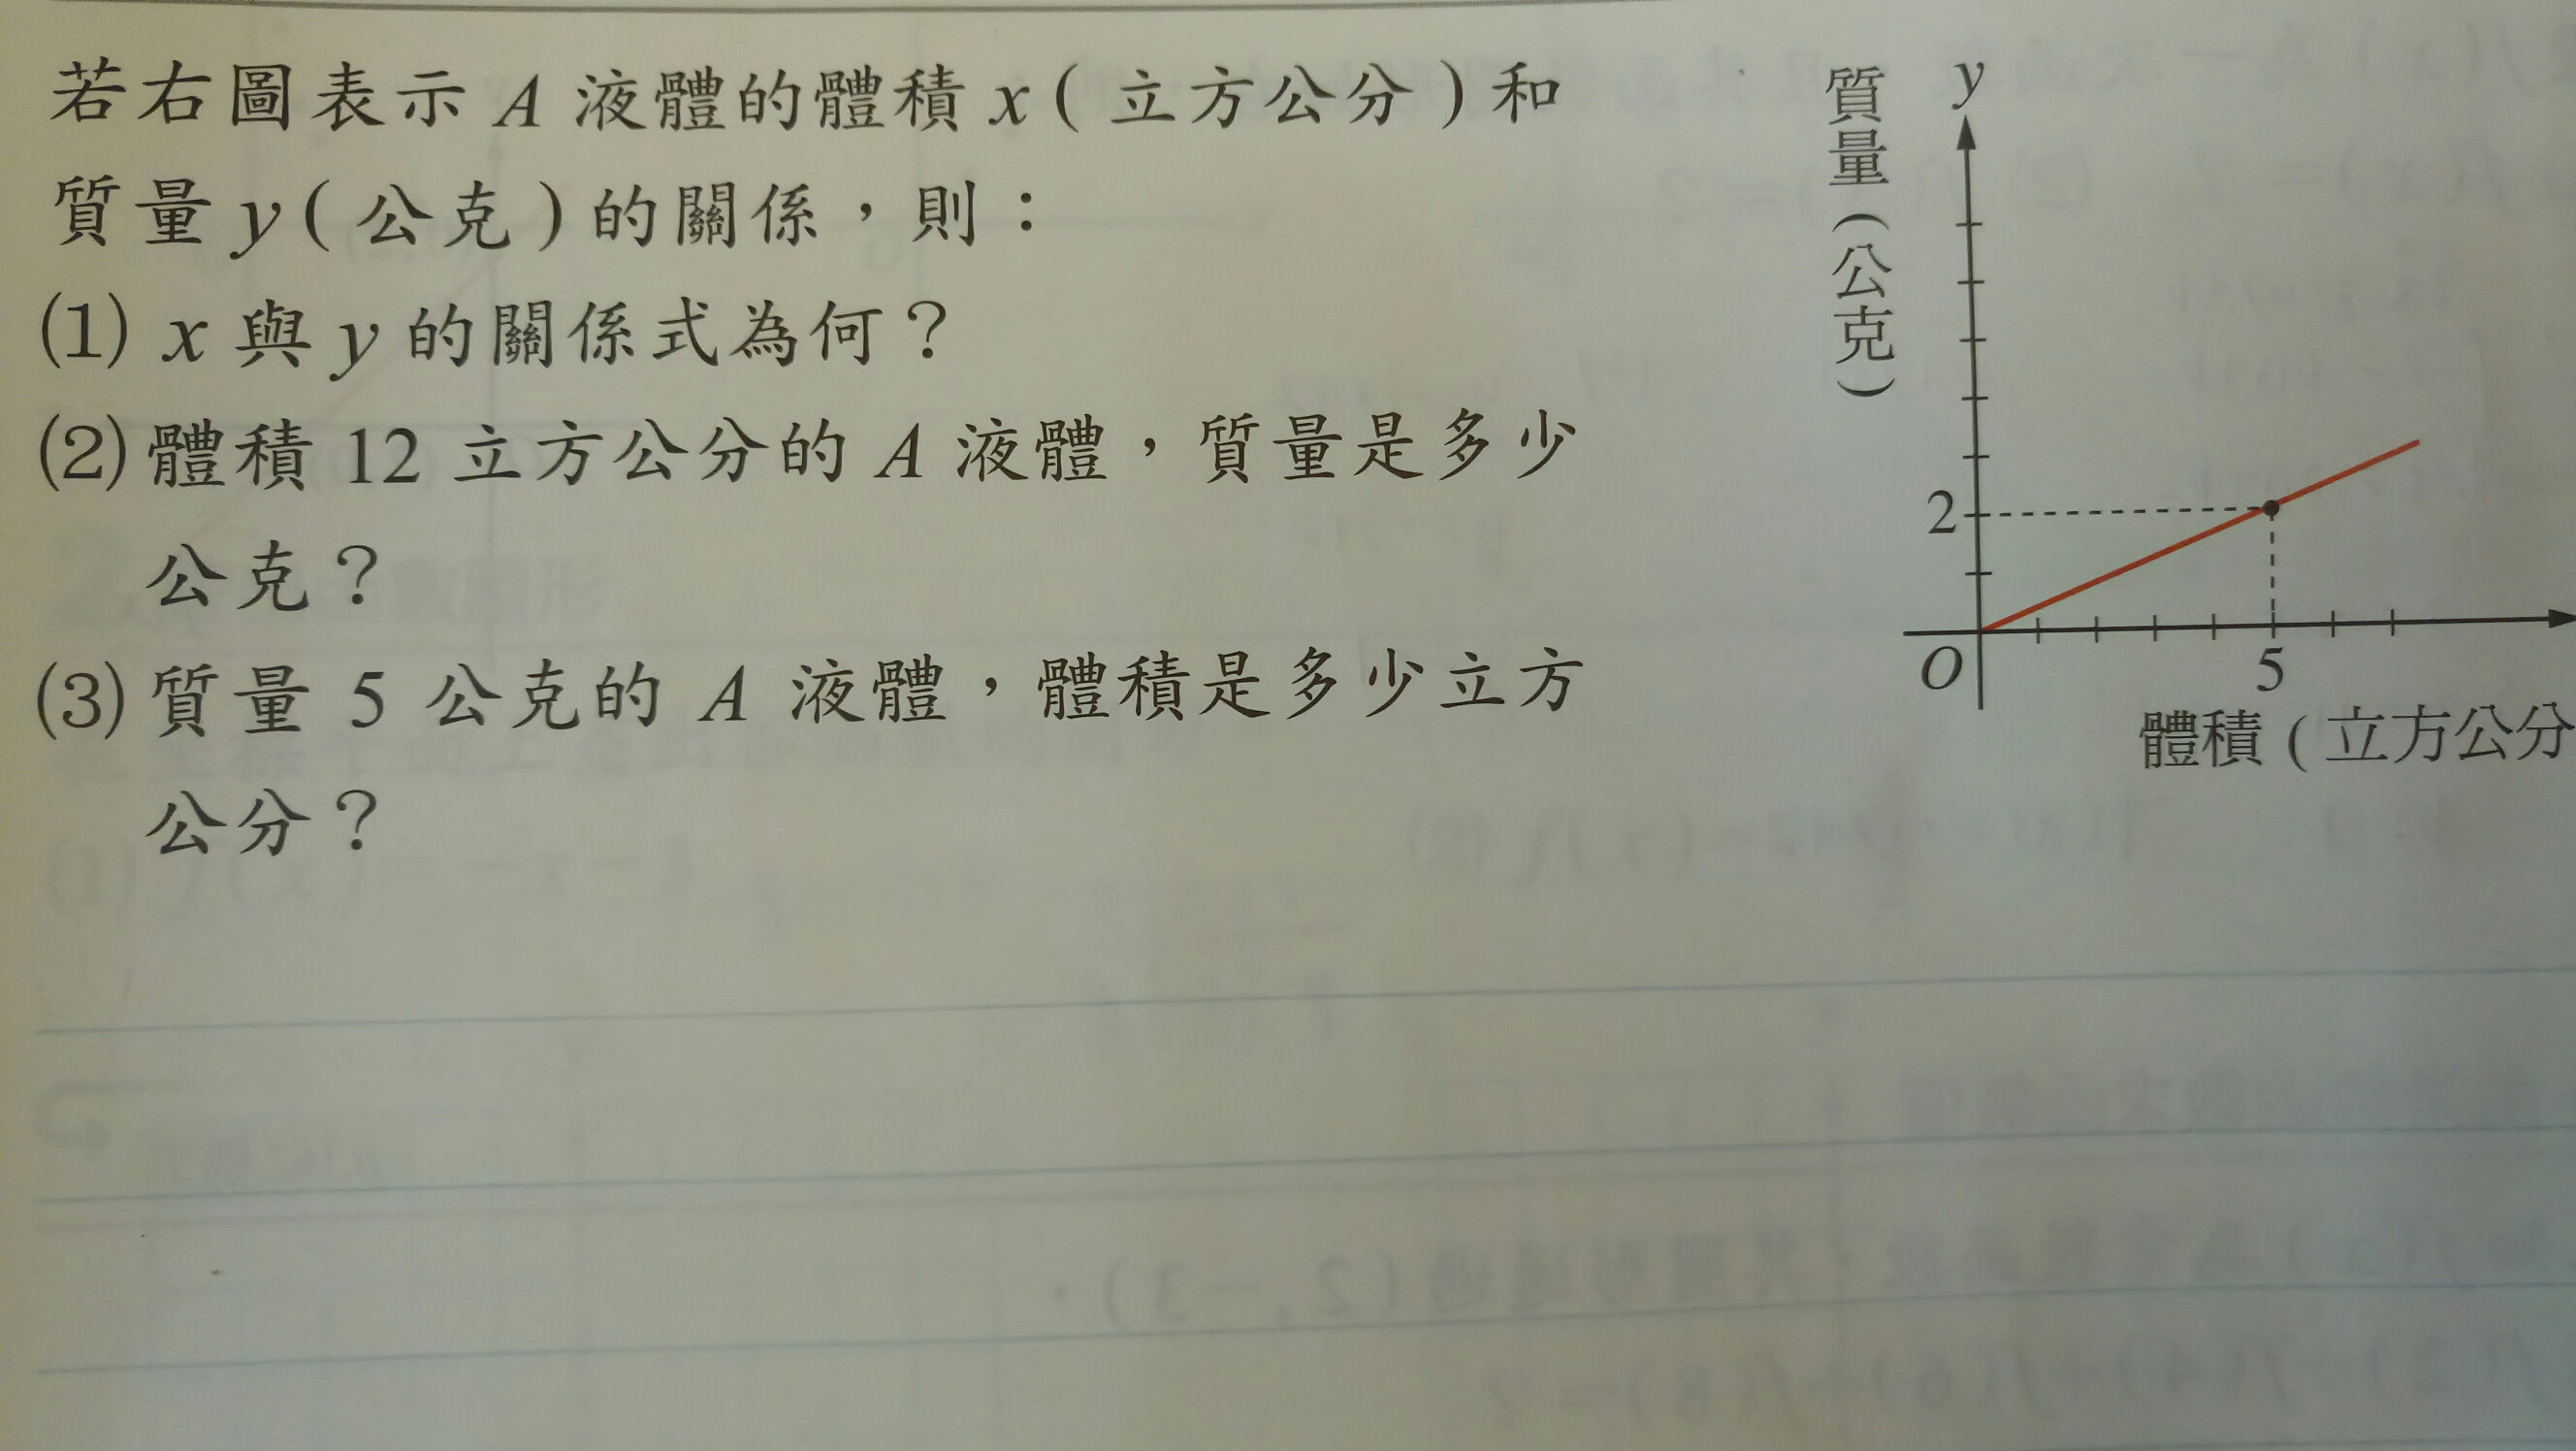 若右圖表示 A 液體的體積 x ( 立方公分 ) 和
質量 y ( 公克 ) 的關係，則：
(1) x 與 y 的關係式為何？
(2) 體積 12 立方公分的 A 液體，質量是多少
公克？
(3) 質量 5 公克的 A 液體，體積是多少立方
公分？
質量(公克)
y
2
O
5
體積 ( 立方公分